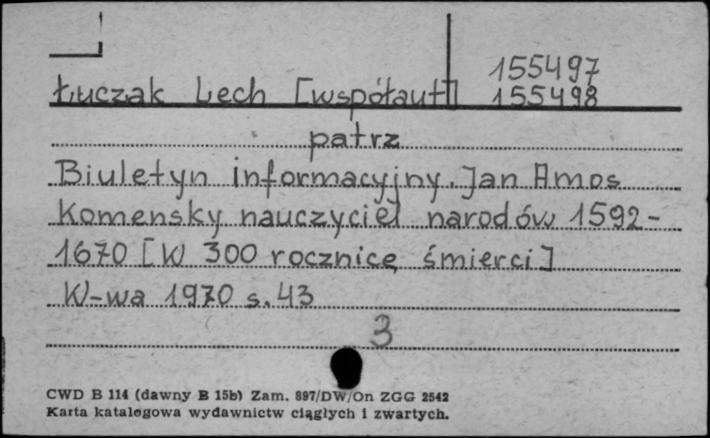 155497
Łuczak Lech [współaut] 155498
patrz
Biuletyn informacyjny. Jan Amos
Komensky nauczyciel narodów 1592-
1670 [W 300 rocznicę śmierci]
W-wa 1970 s. 43
3
CWD B 114 (dawny B 15b) Zam. 897/DW/On ZGG 2542
Karta katalogowa wydawnictw ciągłych i zwartych.